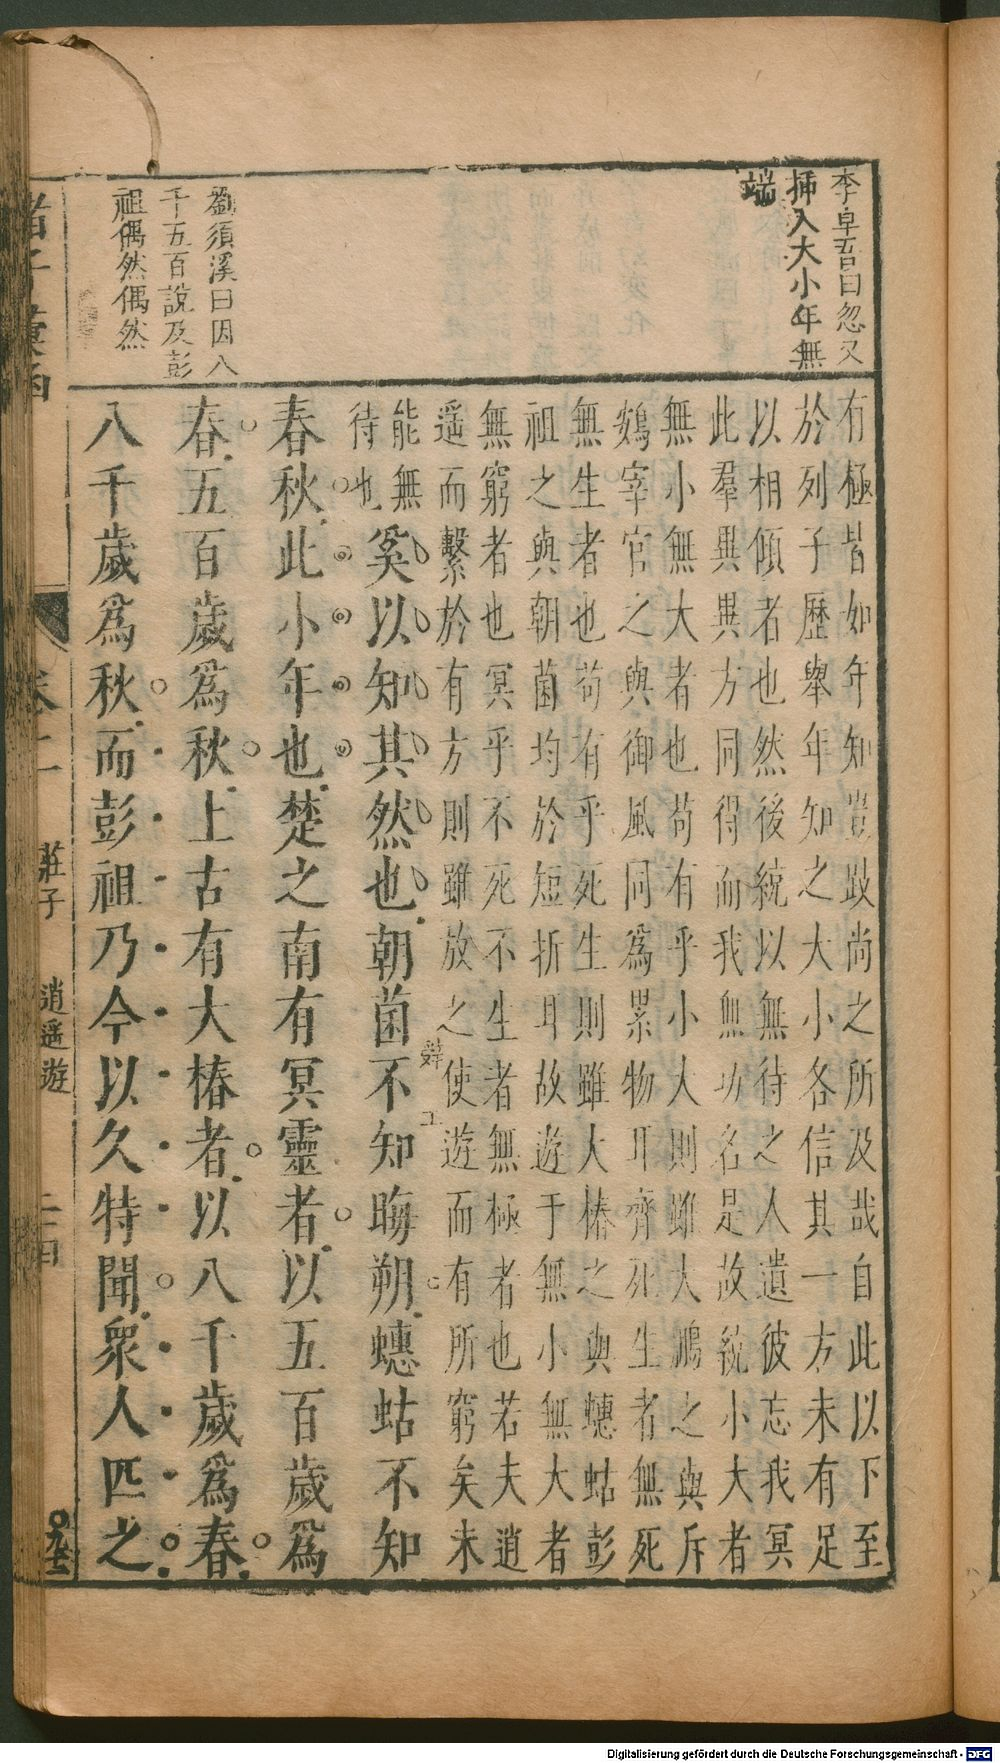 李卓吾曰忽又
插入大小年無
端
劉須溪曰因八
千五百說及彭
祖偶然偶然
有極皆如年知豈跂尚之所及哉自此以下至
於列子歷舉年知之大小各信其一方未有足
以相傾者也然後統以無待之人遺彼忘我冥
此羣異異方同得而我無功名是故統小大者
無小無大者也苟有乎小大則雖大鵬之與斥
鷃宰官之與御風同爲累物耳齊死生者無死
無生者也苟有乎死生則雖大椿之與蟪蛄彭
祖之與朝菌均於短折耳故遊于無小無大者
無窮者也冥乎不死不生者無極者也若夫逍
遥而繫於有方則雖放之使遊而有所窮矣未
能無
待也
奚以知其然也朝菌不知晦朔蟪蛄不知
春秋此小年也楚之南有冥靈者以五百歲爲
春五百歲爲秋上古有大椿者以八千歲爲春
八千歲爲秋而彭祖乃今以久特聞衆人匹之
諸子彙函
卷二
莊子 逍遥遊
Digitalisierung gefördert durch die Deutsche Forschungsgemeinschaft - DFG